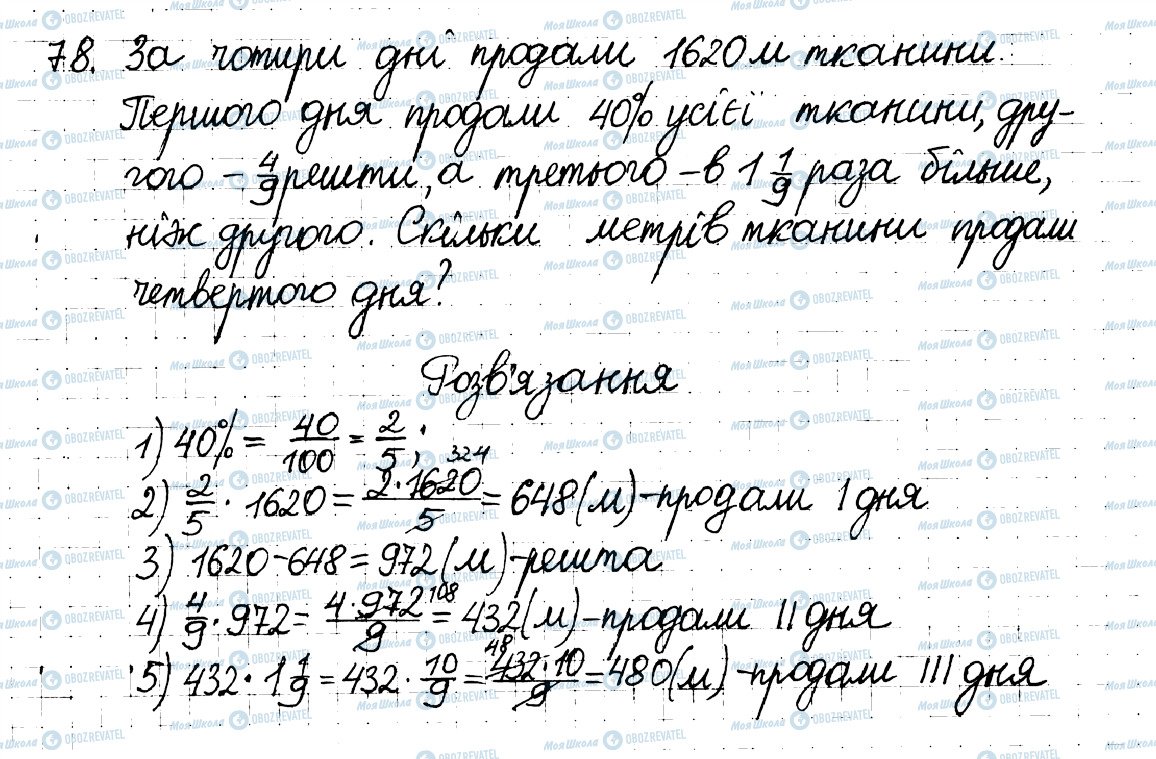 78. За чотири дні продали 1620 м тканини.
Першого дня продали 40% усієї тканини, дру-
гого – 4/9 решти, а третього – в 1 1/9 раза більше,
ніж другого. Скільки метрів тканини продали
четвертого дня?
Розв'язання
1) 40% = 40/100 = 2/5;
2) 2/5 · 1620 = 2·1620/5 324 = 648 (м) - продали I дня
3) 1620 - 648 = 972 (м) - решта
4) 4/9 · 972 = 4·972/9 108 = 432 (м) - продали II дня
5) 432 · 1 1/9 = 432 · 10/9 = 432·10/9 48 = 480 (м) - продали III дня